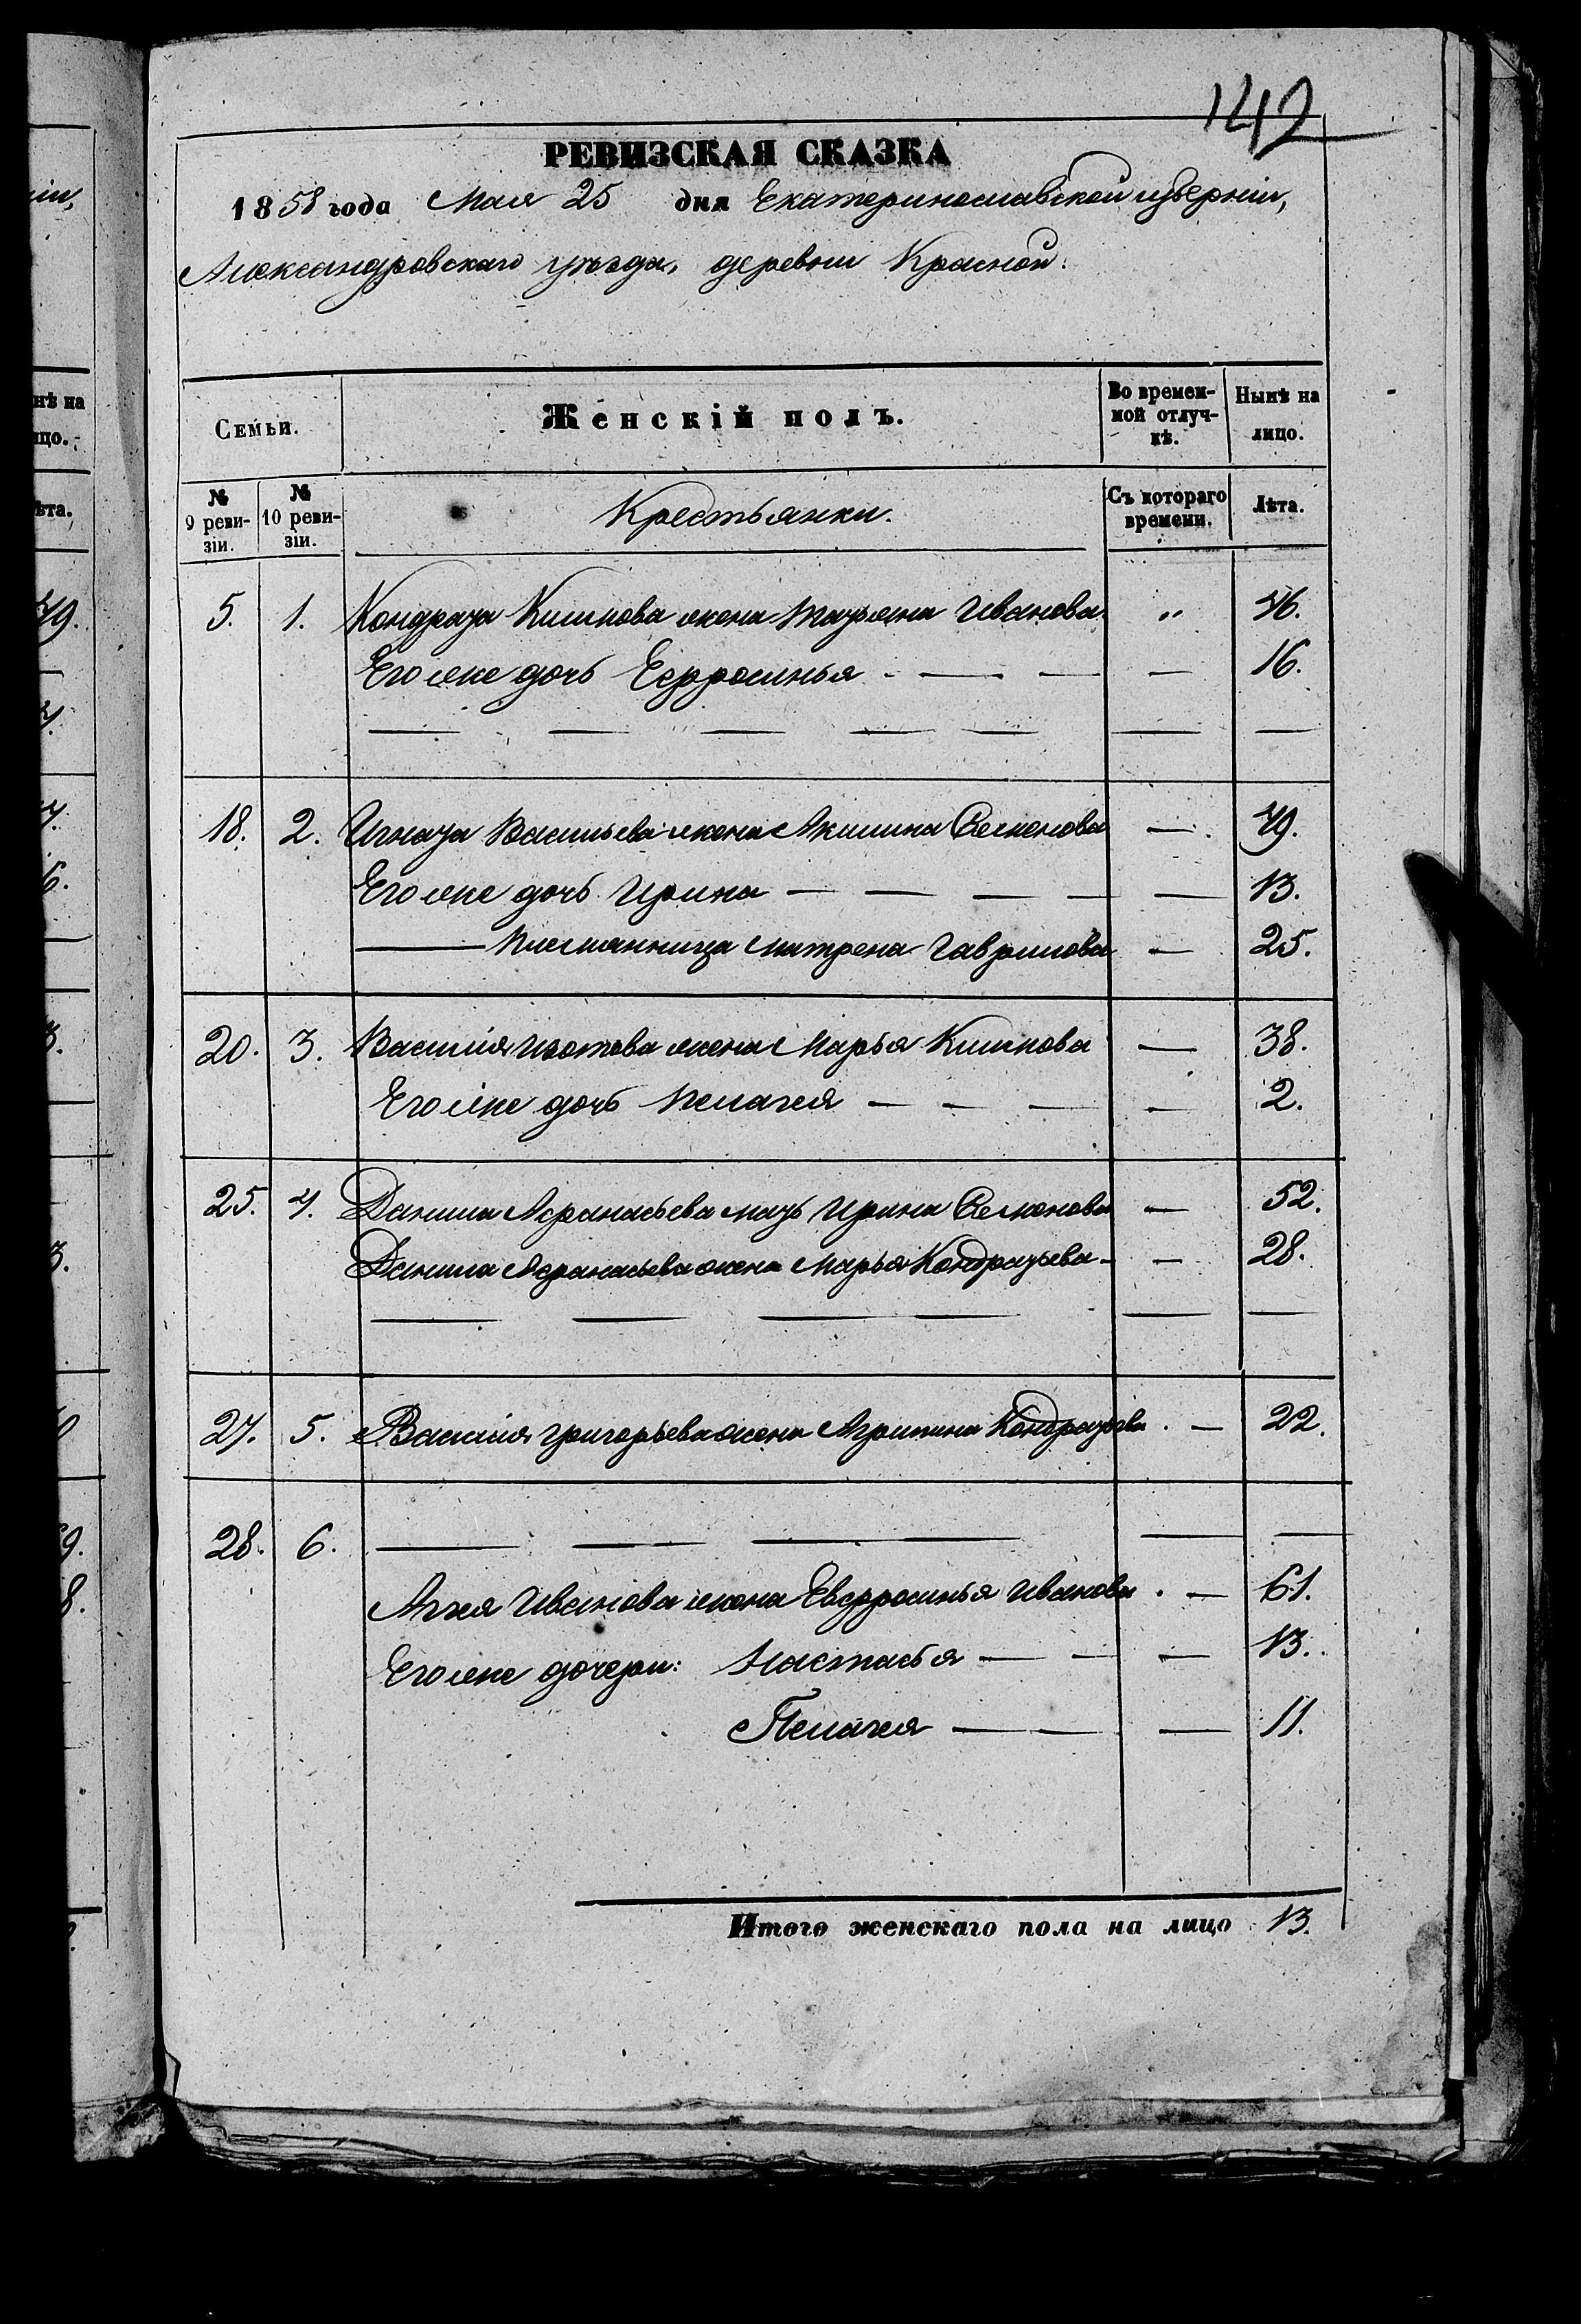 142
РЕВИЗСКАЯ СКАЗКА
1858 года Мая 25 дня Екатеринославской губерніи,
Александровскаго уѣзда, деревни Красной.
Семьи.
Женскій полъ.
Во времен-
ной отлуч-
кѣ.
Нынѣ на
лицо.
№
9 реви-
зіи.
№
10 реви-
зіи.
Крестьянки.
Съ котораго
времени.
Лѣта.
5. 1. Кондрата Климова жена Татьяна Иванова " 46.
Его же дочь Ефросинья - — — — 16.
18. 2. Игната Васильева жена Акилина Семенова — 49.
Его же дочь Ирина — — — — — 13.
— племянница Матрена Гаврилова — 25.
20. 3. Василія Изотова жена Марья Климова — 38.
Его же дочь Пелагея — — — — 2.
25. 4. Данила Афанасьева мать Ирина Семенова — 52.
Данила Афанасьева жена Марья Кондратьева - — 28.
27. 5. Василія Григорьева жена Агрипина Кондратьева — 22.
28. 6.
Агея Иванова жена Евфросинья Иванова — 61.
Его же дочери: Настасья — — — 13.
Пелагея — — — 11.
Итого женскаго пола на лицо 13.